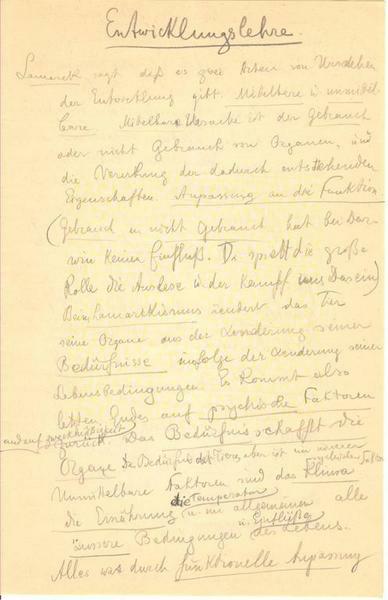 Entwicklungslehre.
Lamarck sagt daß es zwei Arten von Ursachen
der Entwicklung gibt. Mittelbare u. unmittel-
bare. Mittelbare Ursache ist der Gebrauch
oder nicht Gebrauch von Organen, und
die Vererbung der dadurch entstehenden
Eigenschaften. Anpassung an die Funktion
(Gebrauch u. nicht Gebrauch hat bei Dar-
win keinen Einfluß. Da spielt die große
Rolle die Auslese in der Kampf ums Dasein)
Beim Lamarckismus ändert das Tier
seine Organe aus der Aenderung seiner
Bedürfnisse infolge der Aenderung seiner
Lebensbedingungen. Es kommt also
letzten Endes auf psychische Faktoren
und auf Zweckmäßigkeit
zurück. Das Bedürfnis schafft die
Organe. Das Bedürfnis des Tieres aber ist um inneren psychischen Faktoren
Unmittelbare Faktoren sind das Klima
die Temperatur
die Ernährung u. im allgemeinen alle
u. Einflüße
äussere Bedingungen des Lebens.
Alles was durch funktionelle Anpassung